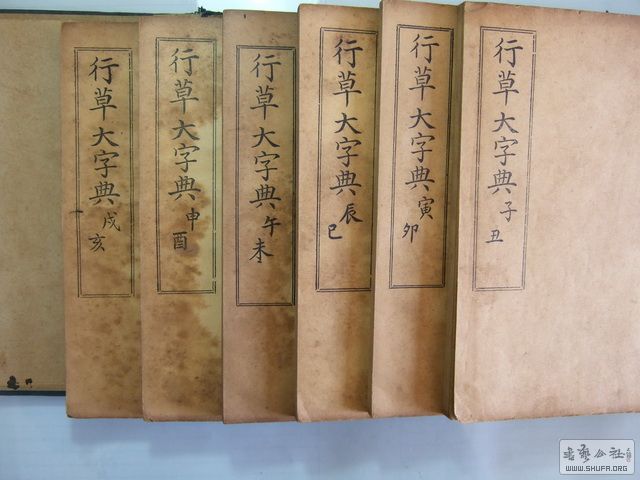 行草大字典 子丑
行草大字典 寅卯
行草大字典 辰巳
行草大字典 午未
行草大字典 申酉
行草大字典 戌亥
書藝公社
WWW.SHUFA.ORG